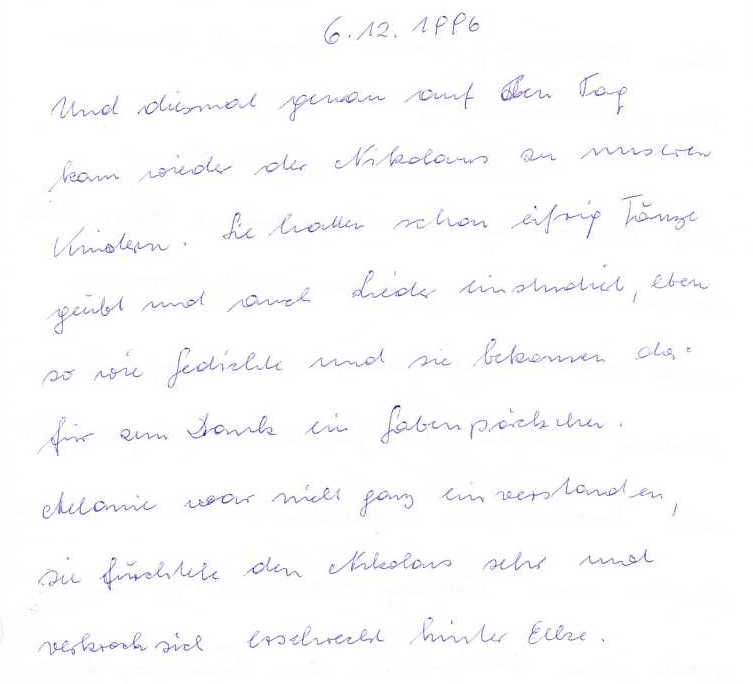 6.12.1996
Und diesmal genau auf den Tag
kam wieder der Nikolaus zu unseren
Kindern. Sie hatten schon eifrig Tänze
geübt und auch Lieder einstudiert, eben
so wie Gedichte und sie bekamen da-
für zum Dank ein Gabenpäckchen.
Melanie war nicht ganz einverstanden,
sie fürchtete den Nikolaus sehr und
verkroch sich erschreckt hinter Elke.